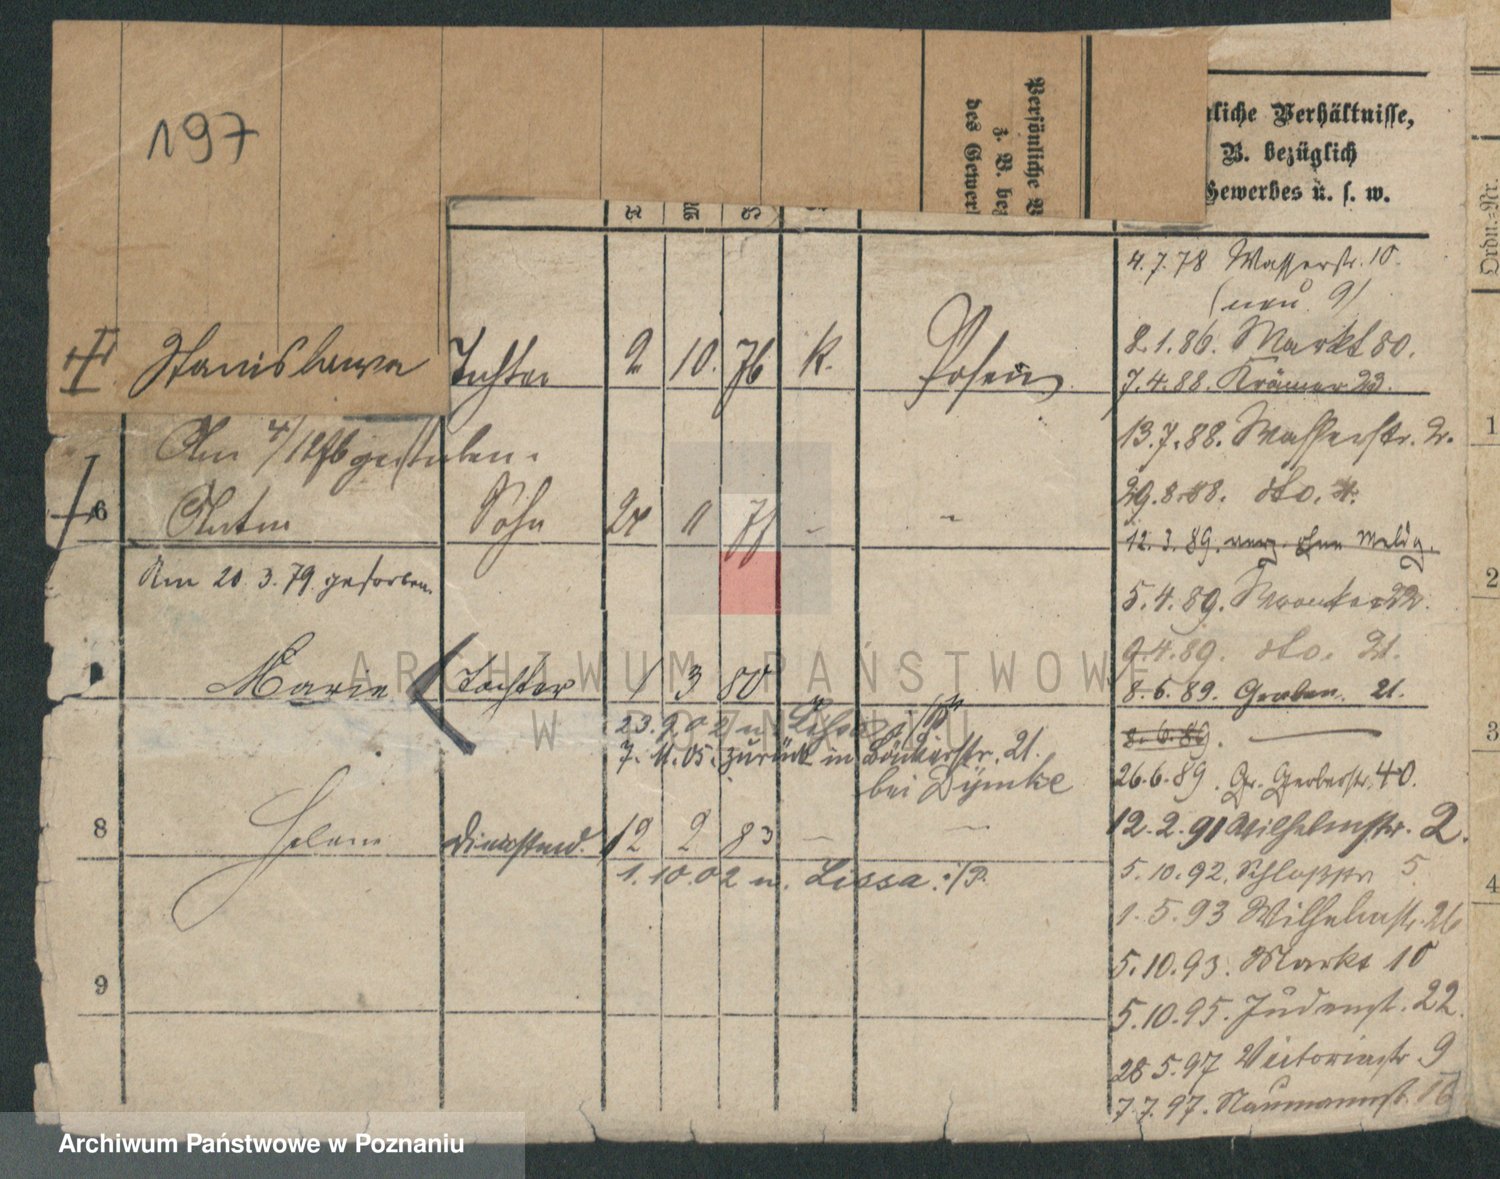 197
Persönliche V
z. B. be
des Gewer
nliche Verhältnisse,
B. bezüglich
Gewerbes u. s. w.
Ordn.-Nr.
Stanislawa Tochter 2 10. 76 K. Posen
Am 4/12 76 gestorben.
6 Anton Sohn 24 11 77 - -
Am 20.3.79. gestorben.
Marie Tochter 1 3 80
23.9.02 n. Lissa i/P
7.11.05. zurück in Bäckerstr. 21.
bei Dymke
8 Helene Dienstmd. 12 2 83 - -
1.10.02 n. Lissa i/P.
9
4.7.78 Wasserstr. 10.
(neu 9)
8.1.86. Markt 80.
7.4.88. Krämer 23.
13.7.88. Wasserstr. 2.
29.8.88. dto. 4.
12.3.89. verz. ohne Meldg.
5.4.89. Wronker 22.
9.4.89. dto. 21.
8.6.89. Graben 21.
8.6.89.
26.6.89. Gr. Gerberstr. 40.
12.2.91 Wilhelmstr. 2.
5.10.92. Schloßstr 5
1.5.93 Wilhelmstr. 26
5.10.93. Markt 10
5.10.95. Judenst. 22.
28 5.97 Victoriastr. 9
7.7.97. Naumannst. 16
1
2
3
4
ARCHIWUM PAŃSTWOWE
W POZNANIU
Archiwum Państwowe w Poznaniu